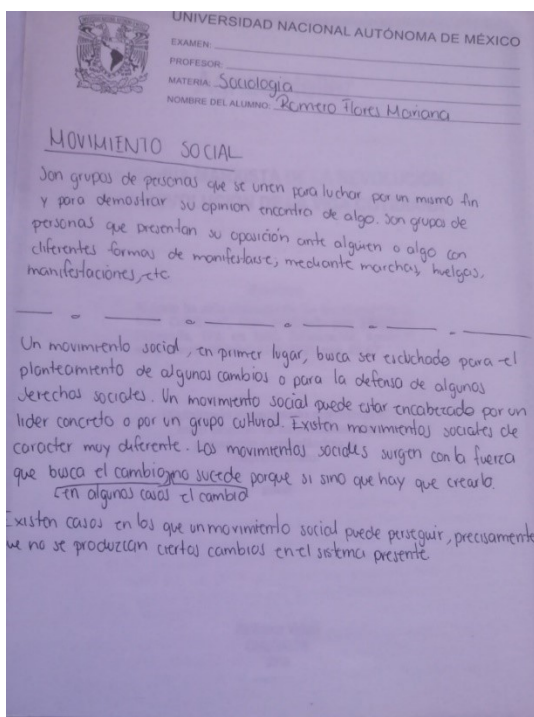 UNIVERSIDAD NACIONAL AUTÓNOMA DE MÉXICO
EXAMEN:
PROFESOR:
MATERIA: Sociología
NOMBRE DEL ALUMNO: Romero Flores Mariana
MOVIMIENTO SOCIAL
Son grupos de personas que se unen para luchar por un mismo fin
y para demostrar su opinion encontra de algo. Son grupos de
personas que presentan su oposición ante alguien o algo con
diferentes formas de manifestarse; mediante marchas, huelgas,
manifestaciones, etc.
Un movimiento social, en primer lugar, busca ser escuchado para el
planteamiento de algunos cambios o para la defensa de algunos
derechos sociales. Un movimiento social puede estar encabezado por un
lider concreto o por un grupo cultural. Existen movimientos sociales de
caracter muy diferente. Los movimientos sociales surgen con la fuerza
que busca el cambio no sucede porque si sino que hay que crearlo.
en algunos casos el cambio
Existen casos en los que un movimiento social puede perseguir, precisamente
ue no se produzcan ciertos cambios en el sistema presente